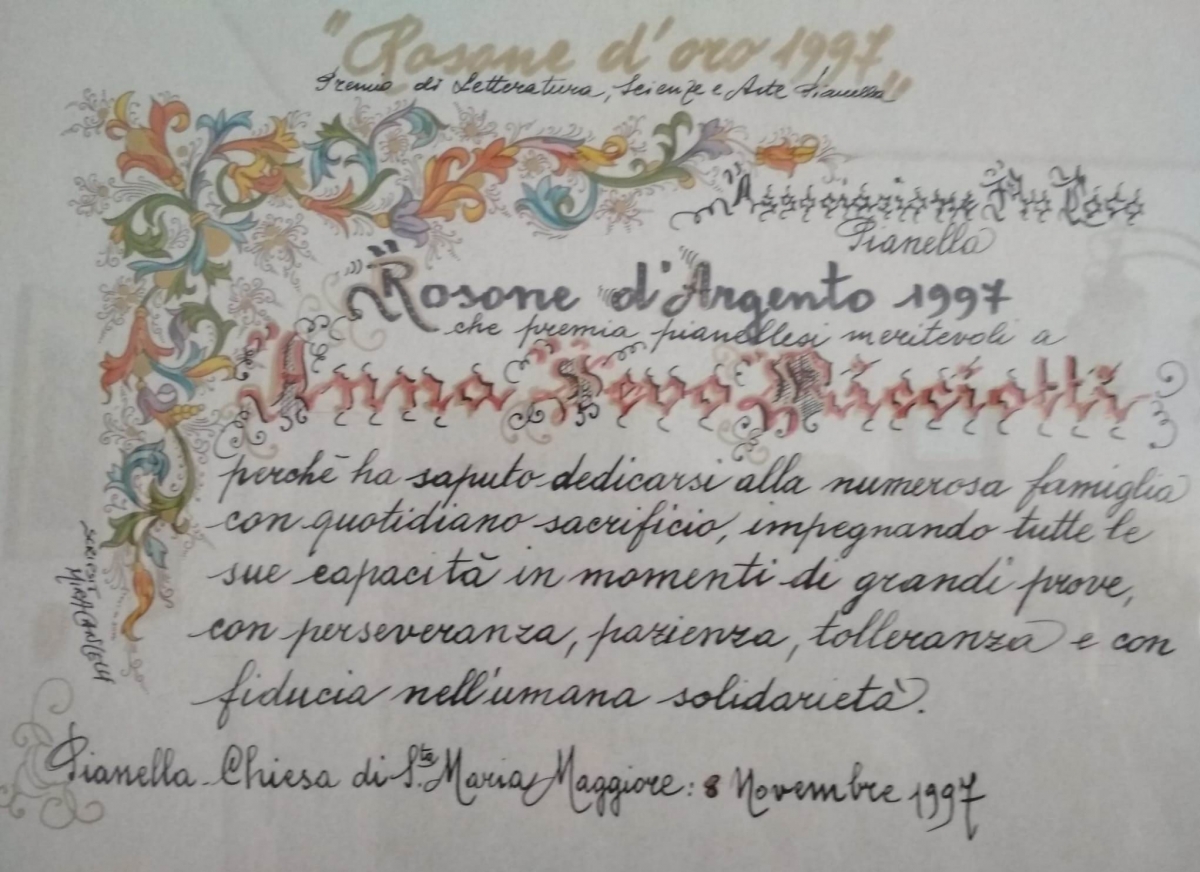 "Rosone d'oro 1997"
Premio di Letteratura, Scienze e Arte Pianella
"Associazione Pro Loco
Pianella
"Rosone d'Argento 1997
che premia pianellesi meritevoli a
"Anna Ricciotti
perchè ha saputo dedicarsi alla numerosa famiglia
con quotidiano sacrificio, impegnando tutte le
sue capacità in momenti di grandi prove,
con perseveranza, pazienza, tolleranza e con
fiducia nell'umana solidarietà.
Pianella - Chiesa di S.ta Maria Maggiore: 8 Novembre 1997